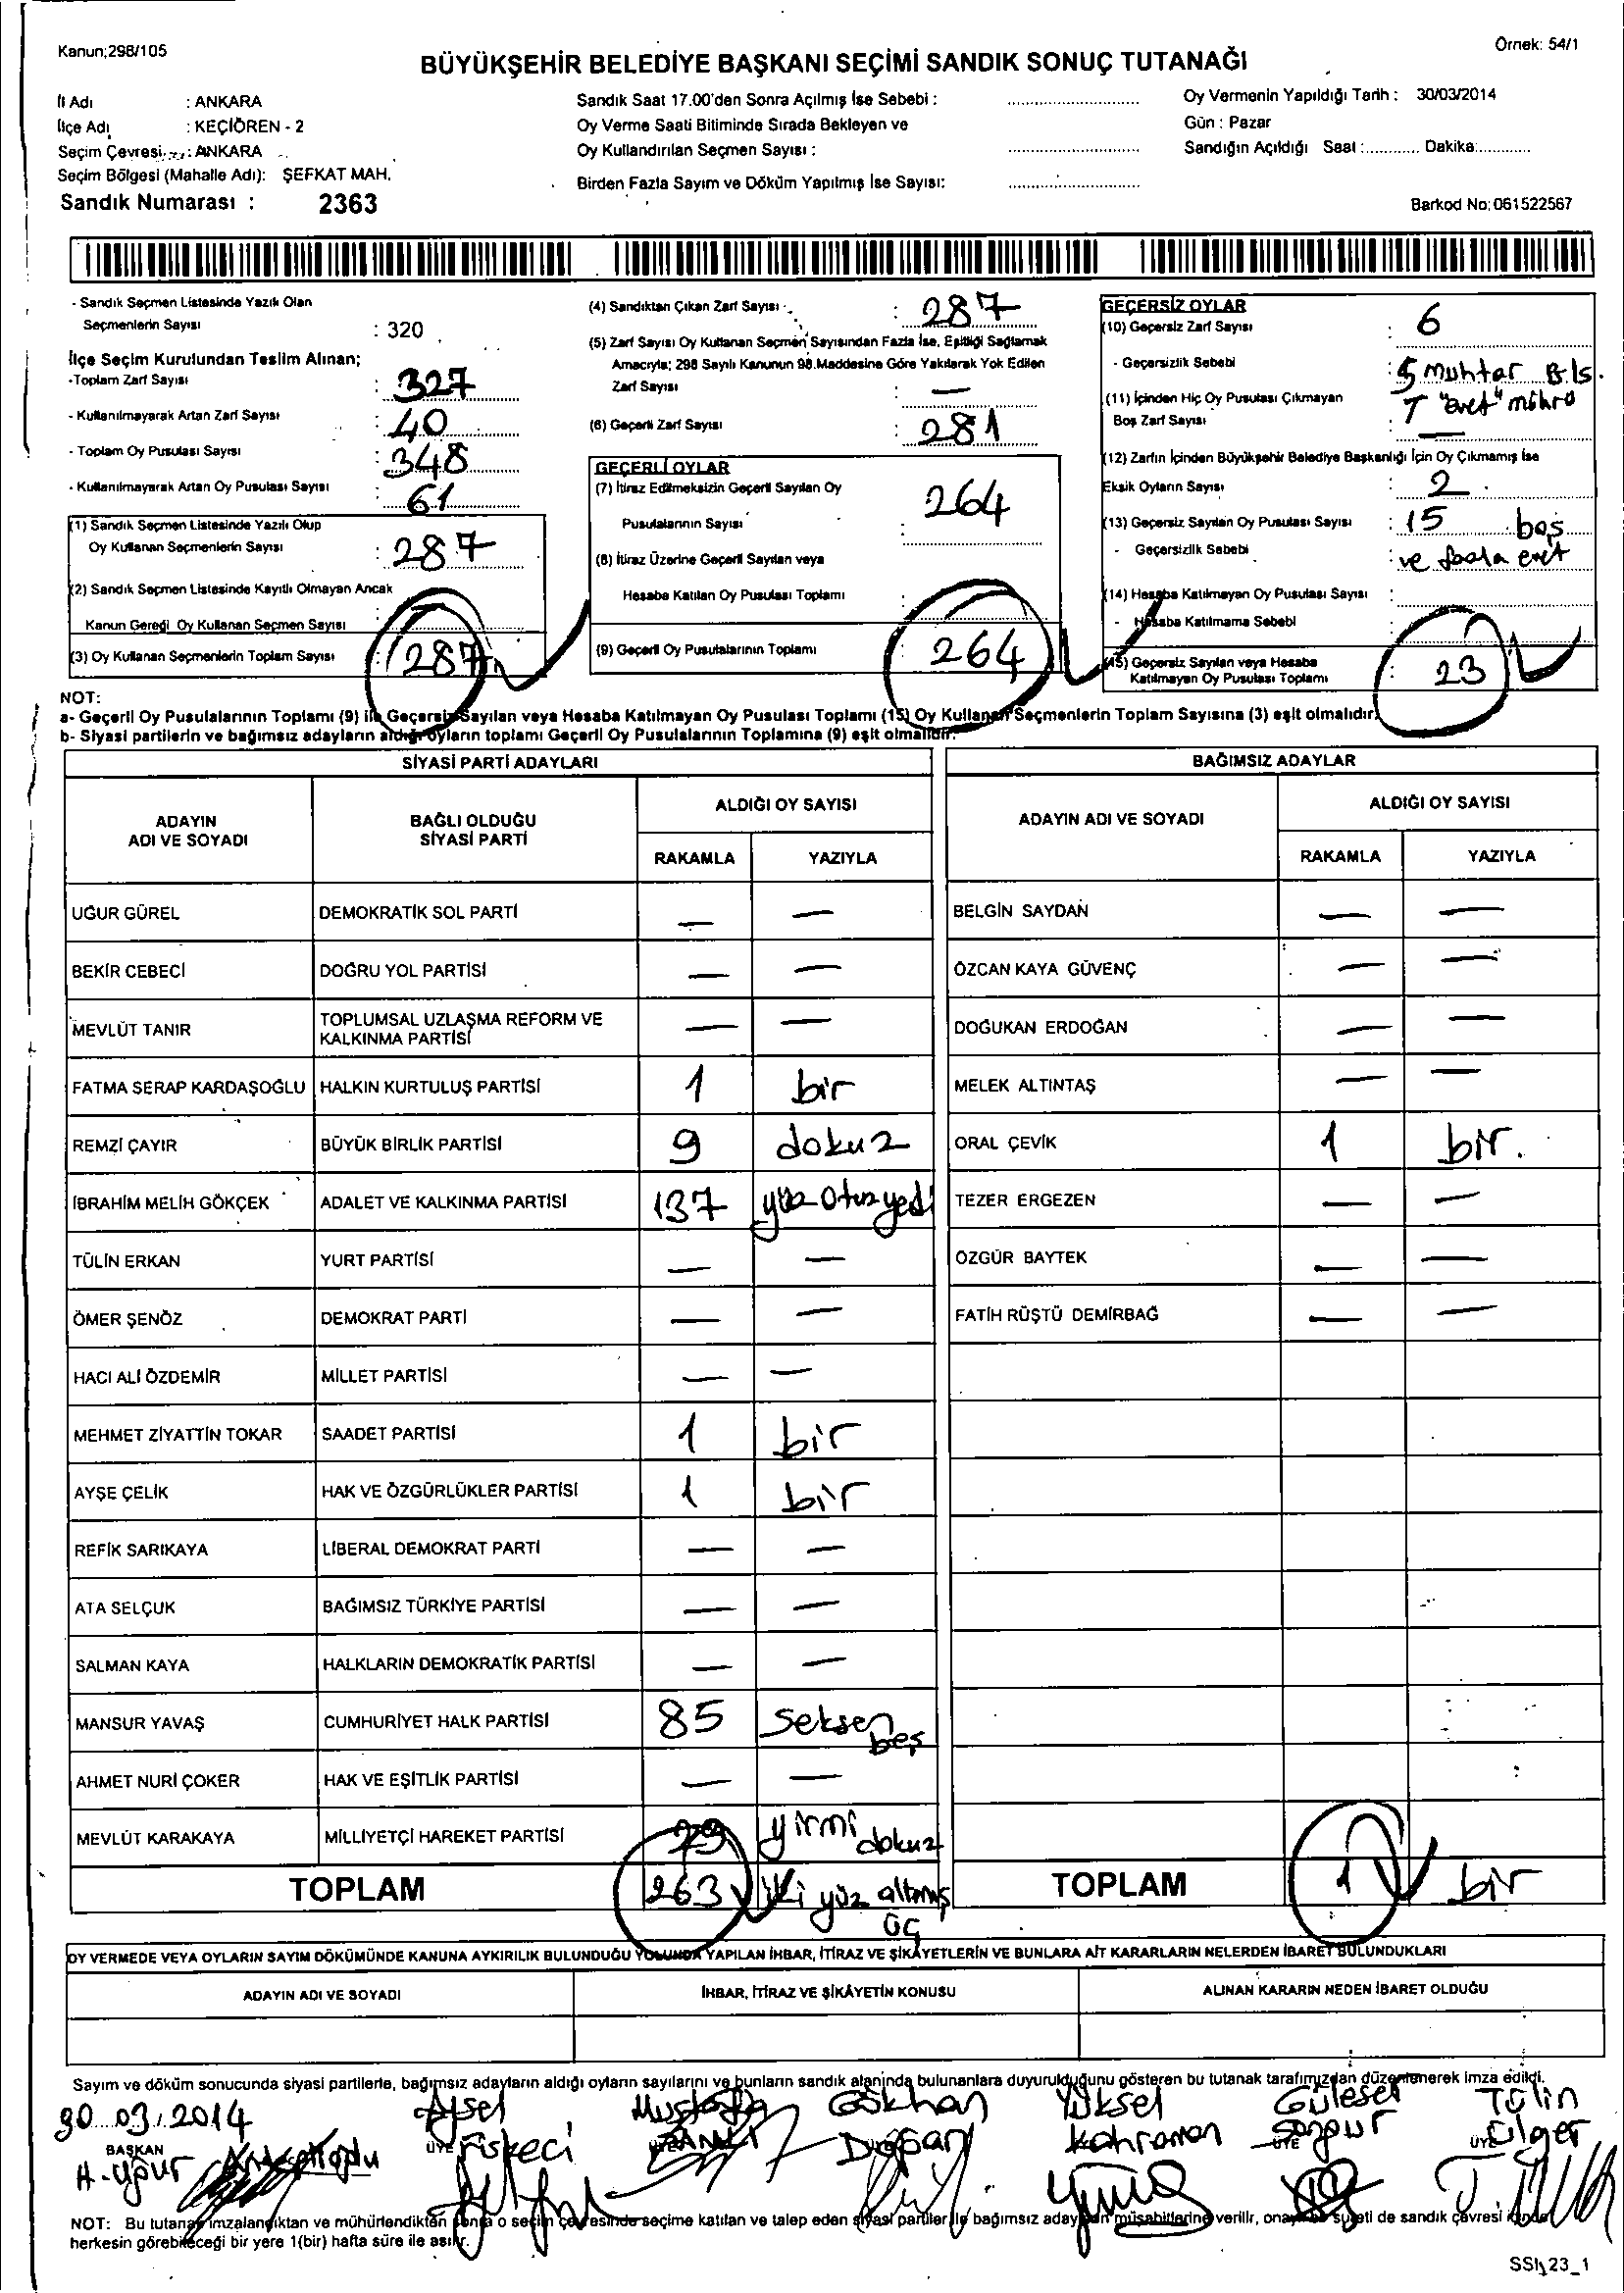 Kanun;298/105
Örnek: 54/1
BÜYÜKŞEHİR BELEDİYE BAŞKANI SEÇİMİ SANDIK SONUÇ TUTANAĞI
İl Adı : ANKARA
İlçe Adı : KEÇİÖREN - 2
Seçim Çevresi : ANKARA
Seçim Bölgesi (Mahalle Adı): ŞEFKAT MAH.
Sandık Numarası : 2363
Sandık Saat 17.00'den Sonra Açılmış İse Sebebi :
Oy Verme Saati Bitiminde Sırada Bekleyen ve
Oy Kullandırılan Seçmen Sayısı :
Birden Fazla Sayım ve Döküm Yapılmış İse Sayısı:
Oy Vermenin Yapıldığı Tarih : 30/03/2014
Gün : Pazar
Sandığın Açıldığı Saat :............ Dakika:............
Barkod No: 061522567
- Sandık Seçmen Listesinde Yazılı Olan
Seçmenlerin Sayısı : 320
İlçe Seçim Kurulundan Teslim Alınan;
-Toplam Zarf Sayısı : 327
- Kullanılmayarak Artan Zarf Sayısı : 40
- Toplam Oy Pusulası Sayısı : 348
- Kullanılmayarak Artan Oy Pusulası Sayısı : 61
(1) Sandık Seçmen Listesinde Yazılı Olup
Oy Kullanan Seçmenlerin Sayısı : 287
(2) Sandık Seçmen Listesinde Kayıtlı Olmayan Ancak
Kanun Gereği Oy Kullanan Seçmen Sayısı
(3) Oy Kullanan Seçmenlerin Toplam Sayısı : 287
(4) Sandıktan Çıkan Zarf Sayısı : 287
(5) Zarf Sayısı Oy Kullanan Seçmen Sayısından Fazla İse, Eşitliği Sağlamak
Amacıyla; 298 Sayılı Kanunun 98.Maddesine Göre Yakılarak Yok Edilen
Zarf Sayısı : —
(6) Geçerli Zarf Sayısı : 281
GEÇERLİ OYLAR
(7) İtiraz Edilmeksizin Geçerli Sayılan Oy
Pusulalarının Sayısı : 264
(8) İtiraz Üzerine Geçerli Sayılan veya
Hesaba Katılan Oy Pusulası Toplamı :
(9) Geçerli Oy Pusulalarının Toplamı : 264
GEÇERSİZ OYLAR
(10) Geçersiz Zarf Sayısı : 6
- Geçersizlik Sebebi : 5 muhtar B.ls.
"evet"
(11) İçinden Hiç Oy Pusulası Çıkmayan
Boş Zarf Sayısı : —
(12) Zarfın İçinden Büyükşehir Belediye Başkanlığı İçin Oy Çıkmamış İse
Eksik Oyların Sayısı : 2
(13) Geçersiz Sayılan Oy Pusulası Sayısı : 15 boş
- Geçersizlik Sebebi : ve fazla evet
(14) Hesaba Katılmayan Oy Pusulası Sayısı :
- Hesaba Katılmama Sebebi :
(15) Geçersiz Sayılan veya Hesaba
Katılmayan Oy Pusulası Toplamı : 23
NOT:
a- Geçerli Oy Pusulalarının Toplamı (9) ile Geçersiz Sayılan veya Hesaba Katılmayan Oy Pusulası Toplamı (15) Oy Kullanan Seçmenlerin Toplam Sayısına (3) eşit olmalıdır.
b- Siyasi partilerin ve bağımsız adayların aldığı oyların toplamı Geçerli Oy Pusulalarının Toplamına (9) eşit olmalıdır.
SİYASİ PARTİ ADAYLARI
ADAYIN ADI VE SOYADI
BAĞLI OLDUĞU SİYASİ PARTİ
ALDIĞI OY SAYISI
RAKAMLA YAZIYLA
UĞUR GÜREL DEMOKRATİK SOL PARTİ — —
BEKİR CEBECİ DOĞRU YOL PARTİSİ — —
MEVLÜT TANIR TOPLUMSAL UZLAŞMA REFORM VE KALKINMA PARTİSİ — —
FATMA SERAP KARDAŞOĞLU HALKIN KURTULUŞ PARTİSİ 1 bir
REMZİ ÇAYIR BÜYÜK BİRLİK PARTİSİ 9 dokuz
İBRAHİM MELİH GÖKÇEK ADALET VE KALKINMA PARTİSİ 137 yüz otuz yedi
TÜLİN ERKAN YURT PARTİSİ — —
ÖMER ŞENÖZ DEMOKRAT PARTİ — —
HACI ALİ ÖZDEMİR MİLLET PARTİSİ — —
MEHMET ZİYATTİN TOKAR SAADET PARTİSİ 1 bir
AYŞE ÇELİK HAK VE ÖZGÜRLÜKLER PARTİSİ 1 bir
REFİK SARIKAYA LİBERAL DEMOKRAT PARTİ — —
ATA SELÇUK BAĞIMSIZ TÜRKİYE PARTİSİ — —
SALMAN KAYA HALKLARIN DEMOKRATİK PARTİSİ — —
MANSUR YAVAŞ CUMHURİYET HALK PARTİSİ 85 Seksen beş
AHMET NURİ ÇOKER HAK VE EŞİTLİK PARTİSİ — —
MEVLÜT KARAKAYA MİLLİYETÇİ HAREKET PARTİSİ 29 yirmi dokuz
TOPLAM 263 iki yüz altmış üç
BAĞIMSIZ ADAYLAR
ADAYIN ADI VE SOYADI
ALDIĞI OY SAYISI
RAKAMLA YAZIYLA
BELGİN SAYDAN — —
ÖZCAN KAYA GÜVENÇ — —
DOĞUKAN ERDOĞAN — —
MELEK ALTINTAŞ — —
ORAL ÇEVİK 1 bir.
TEZER ERGEZEN — —
ÖZGÜR BAYTEK — —
FATİH RÜŞTÜ DEMİRBAĞ — —
TOPLAM 1 bir
OY VERMEDE VEYA OYLARIN SAYIM DÖKÜMÜNDE KANUNA AYKIRILIK BULUNDUĞU YOLUNDA YAPILAN İHBAR, İTİRAZ VE ŞİKÂYETLERİN VE BUNLARA AİT KARARLARIN NELERDEN İBARET BULUNDUKLARI
ADAYIN ADI VE SOYADI
İHBAR, İTİRAZ VE ŞİKÂYETİN KONUSU
ALINAN KARARIN NEDEN İBARET OLDUĞU
Sayım ve döküm sonucunda siyasi partilerle, bağımsız adayların aldığı oyların sayılarını ve bunların sandık alanında bulunanlara duyurulduğunu gösteren bu tutanak tarafımızdan düzenlenerek imza edildi.
30.03.2014
BAŞKAN
A. Uğur
Aysel
ÜYE Fişkeci
Mustafa
Gökhan
Doğan
Yüksel
Kahraman
Güleser
ÜYE
Tülin
ÜYE Ülger
NOT: Bu tutanak imzalandıktan ve mühürlendikten sonra o seçim çevresinde seçime katılan ve talep eden siyasi partiler ile bağımsız adayların müşahitlerine verilir, onaylı bir sureti de sandık çevresi içinde
herkesin görebileceği bir yere 1(bir) hafta süre ile asılır.
SSI 23_1